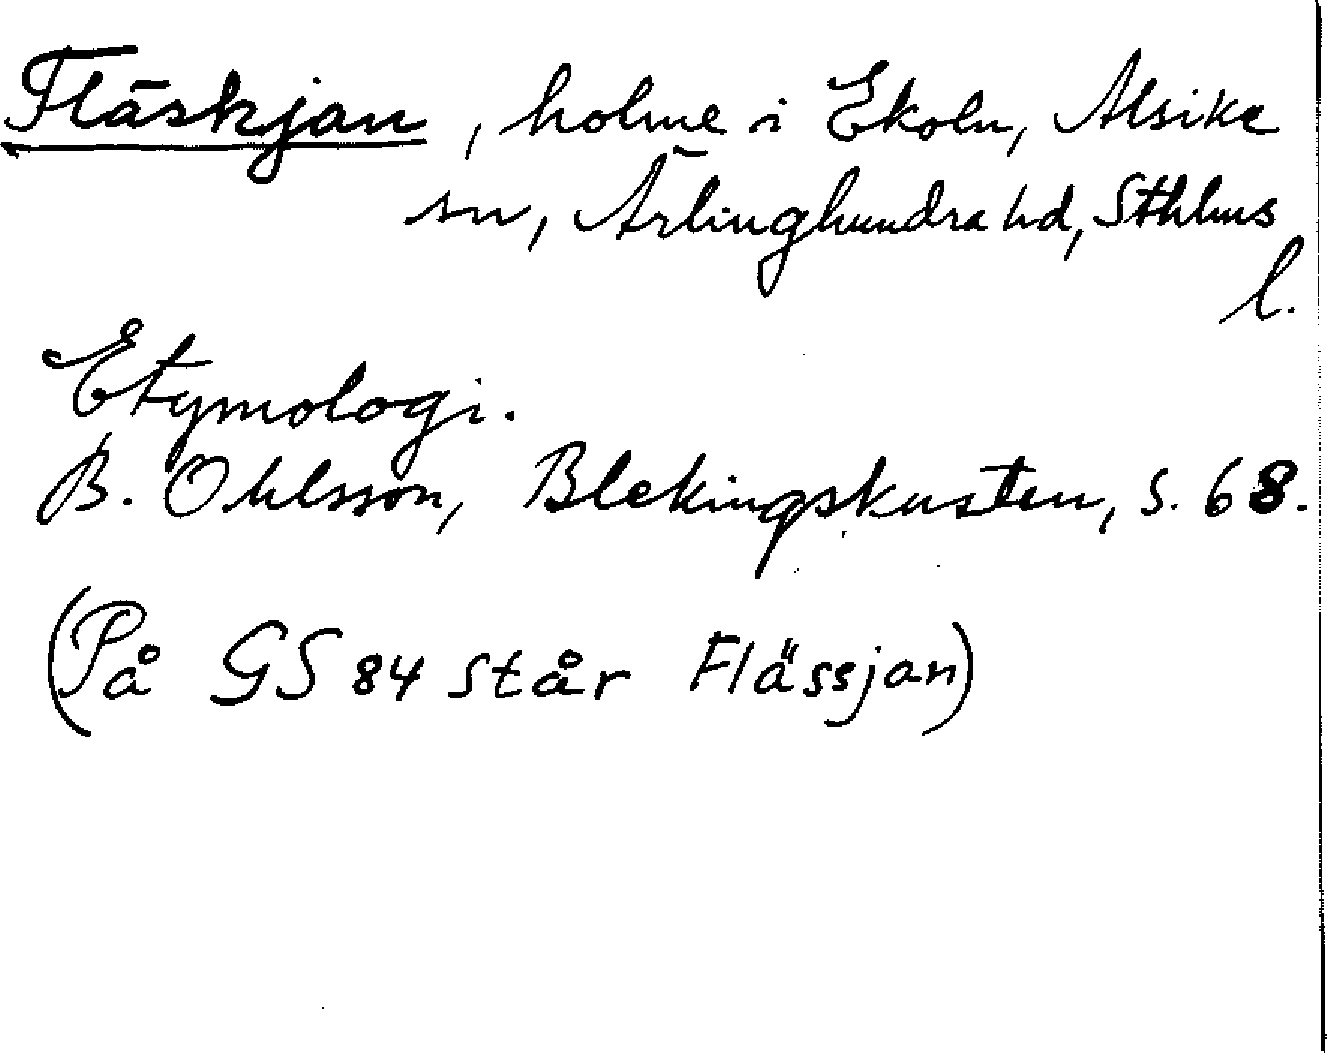 Fläskjan, holme i Ekoln, Alsike
sn, Ärlinghundra hd, Sthlms
l.
Etymologi.
B. Ohlsson, Blekingskusten, s. 68.
(På GS 84 står Flässjan)